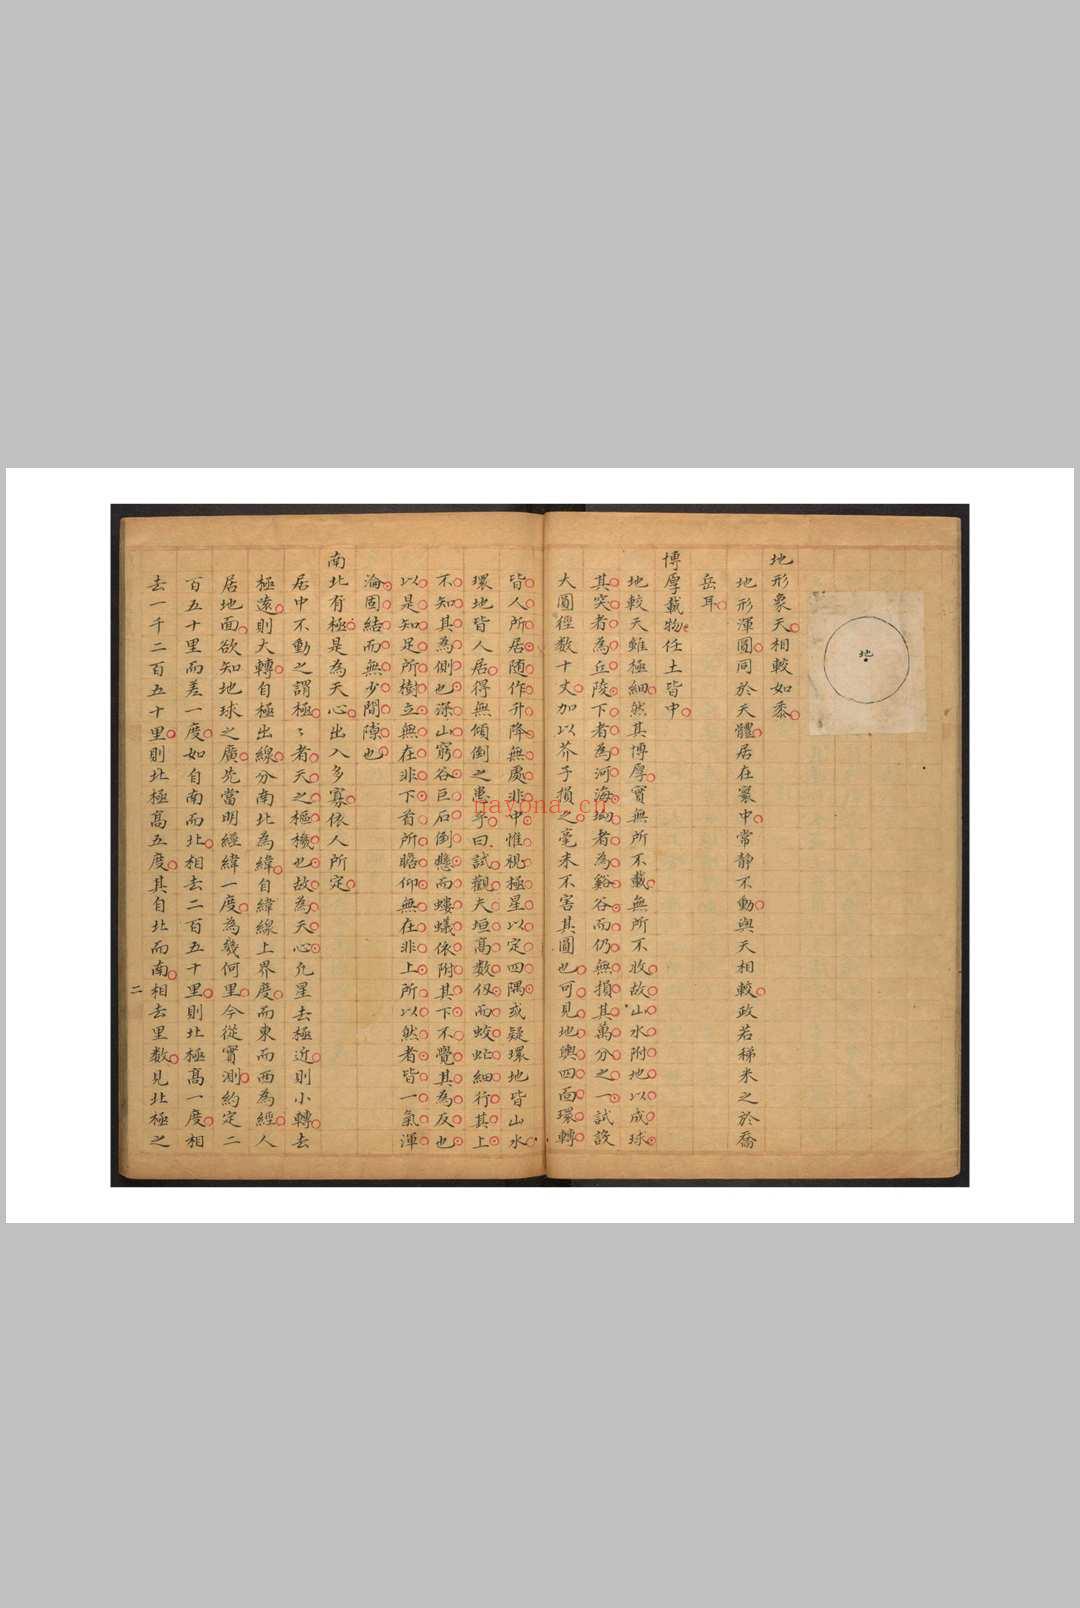 地
地形象天相較如黍
地形渾圓同於天體居在寰中常靜不動與天相較政若稊米之於喬
岳耳
博厚載物任土皆中
地較天雖極細然其博厚實無所不載無所不收故山水附地以成球
其突者為丘陵下者為河海坳者為谿谷而仍無損其萬分之一試設
大圓徑数十丈加以芥子損之毫末不害其圓也可見地輿四面環轉
皆人所居随作升降無處非中惟視極星以定四隅或疑環地皆山水
環地皆人居得無傾倒之患乎曰試觀夫垣高数仭而蛟蛇細行其上
不知其為側也深山窮谷巨石倒懸而螻蟻依附其下不覺其為反也
以是知足所樹立無在非下首所瞻仰無在非上所以然者皆一氣渾
淪固結而無少間隙也
南北有極是為天心出入多寡依人所定
居中不動之謂極〻者天之樞機也故為天心凢星去極近則小轉去
極遠則大轉自極出線分南北為緯自緯線上界度而東而西為經人
居地面欲知地球之廣先當明經緯一度為幾何里今從實測約定二
百五十里而差一度如自南而北相去二百五十里則北極高一度相
去一千二百五十里則北極高五度其自北而南相去里数見北極之
二
nayona.cn